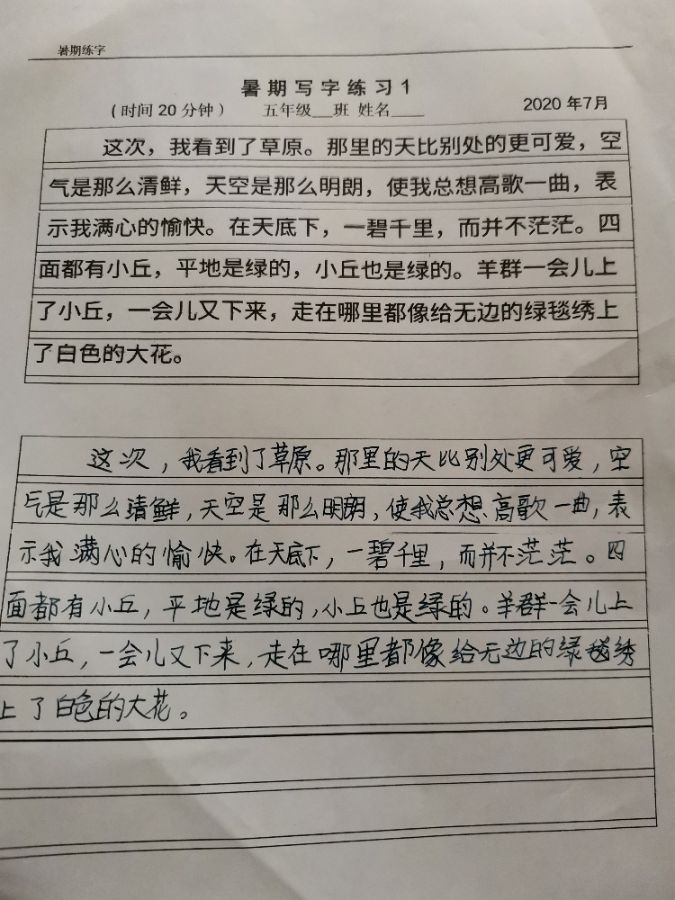 暑期练字
暑期写字练习1
(时间20分钟) 五年级__班 姓名____ 2020年7月
这次，我看到了草原。那里的天比别处的更可爱，空
气是那么清鲜，天空是那么明朗，使我总想高歌一曲，表
示我满心的愉快。在天底下，一碧千里，而并不茫茫。四
面都有小丘，平地是绿的，小丘也是绿的。羊群一会儿上
了小丘，一会儿又下来，走在哪里都像给无边的绿毯绣上
了白色的大花。
这次，我看到了草原。那里的天比别处更可爱，空
气是那么清鲜，天空是那么明朗，使我总想高歌一曲，表
示我满心的愉快。在天底下，一碧千里，而并不茫茫。四
面都有小丘，平地是绿的，小丘也是绿的。羊群一会儿上
了小丘，一会儿又下来，走在哪里都像给无边的绿毯绣
上了白色的大花。